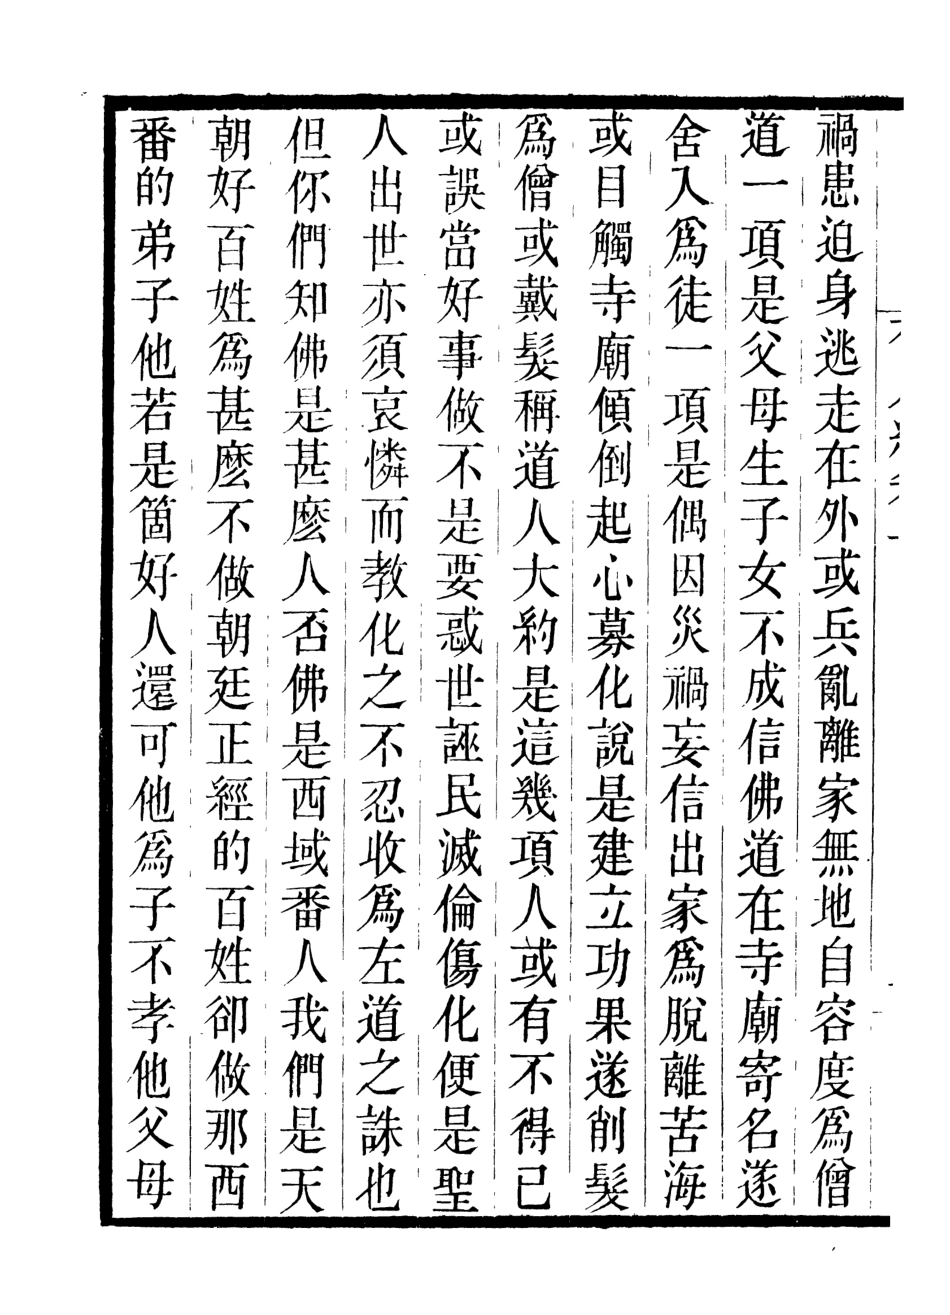 禍患迫身逃走在外或兵亂離家無地自容度爲僧
道一項是父母生子女不成信佛道在寺廟寄名遂
舍入爲徒一項是偶因災禍妄信出家爲脫離苦海
或目觸寺廟傾倒起心募化說是建立功果遂削髮
爲僧或戴髮稱道人大約是這幾項人或有不得已
或誤當好事做不是要惑世誣民滅倫傷化便是聖
人出世亦須哀憐而教化之不忍收爲左道之誅也
但你們知佛是甚麽人否佛是西域番人我們是天
朝好百姓爲甚麽不做朝廷正經的百姓卻做那西
番的弟子他若是箇好人還可他爲子不孝他父母